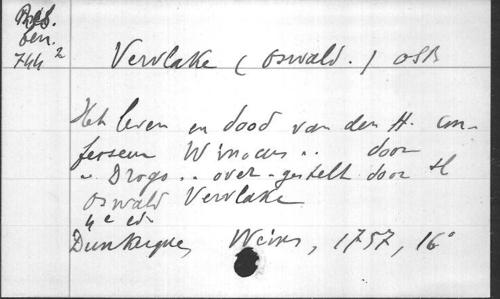 Ben.
744 2
Vervlake (Oswald.) OSB
Het leven en dood van den H. con-
fesseur Winocus .. door
.. Drogo .. over-gestelt door H
Oswald Vervlake
4e ed.
Dunkerque, Weins, 1757, 16°